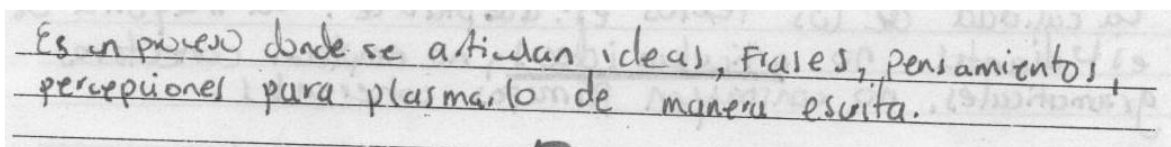 Es un proceso donde se articulan ideas, Frases, pensamientos,
percepciones para plasmarlo de manera escrita.